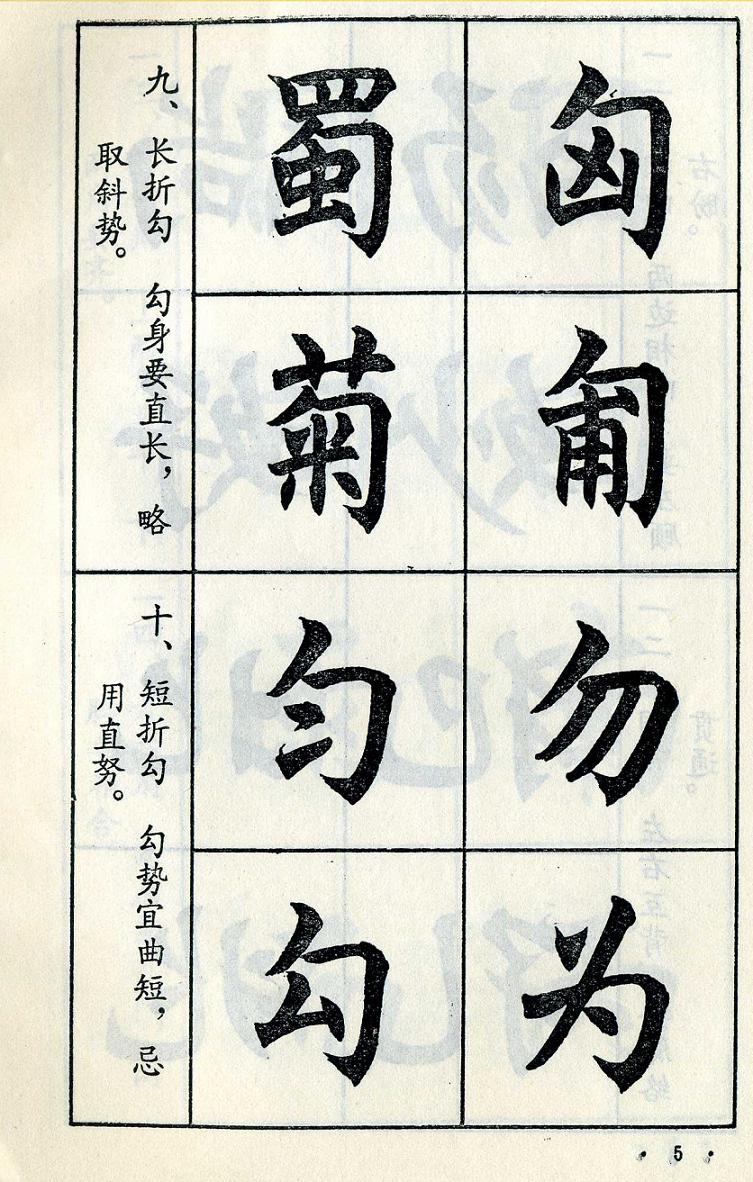 匈匍
蜀菊
九、长折勾 勾身要直长，略
取斜势。
勿为
匀勾
十、短折勾 勾势宜曲短，忌
用直努。
·5·